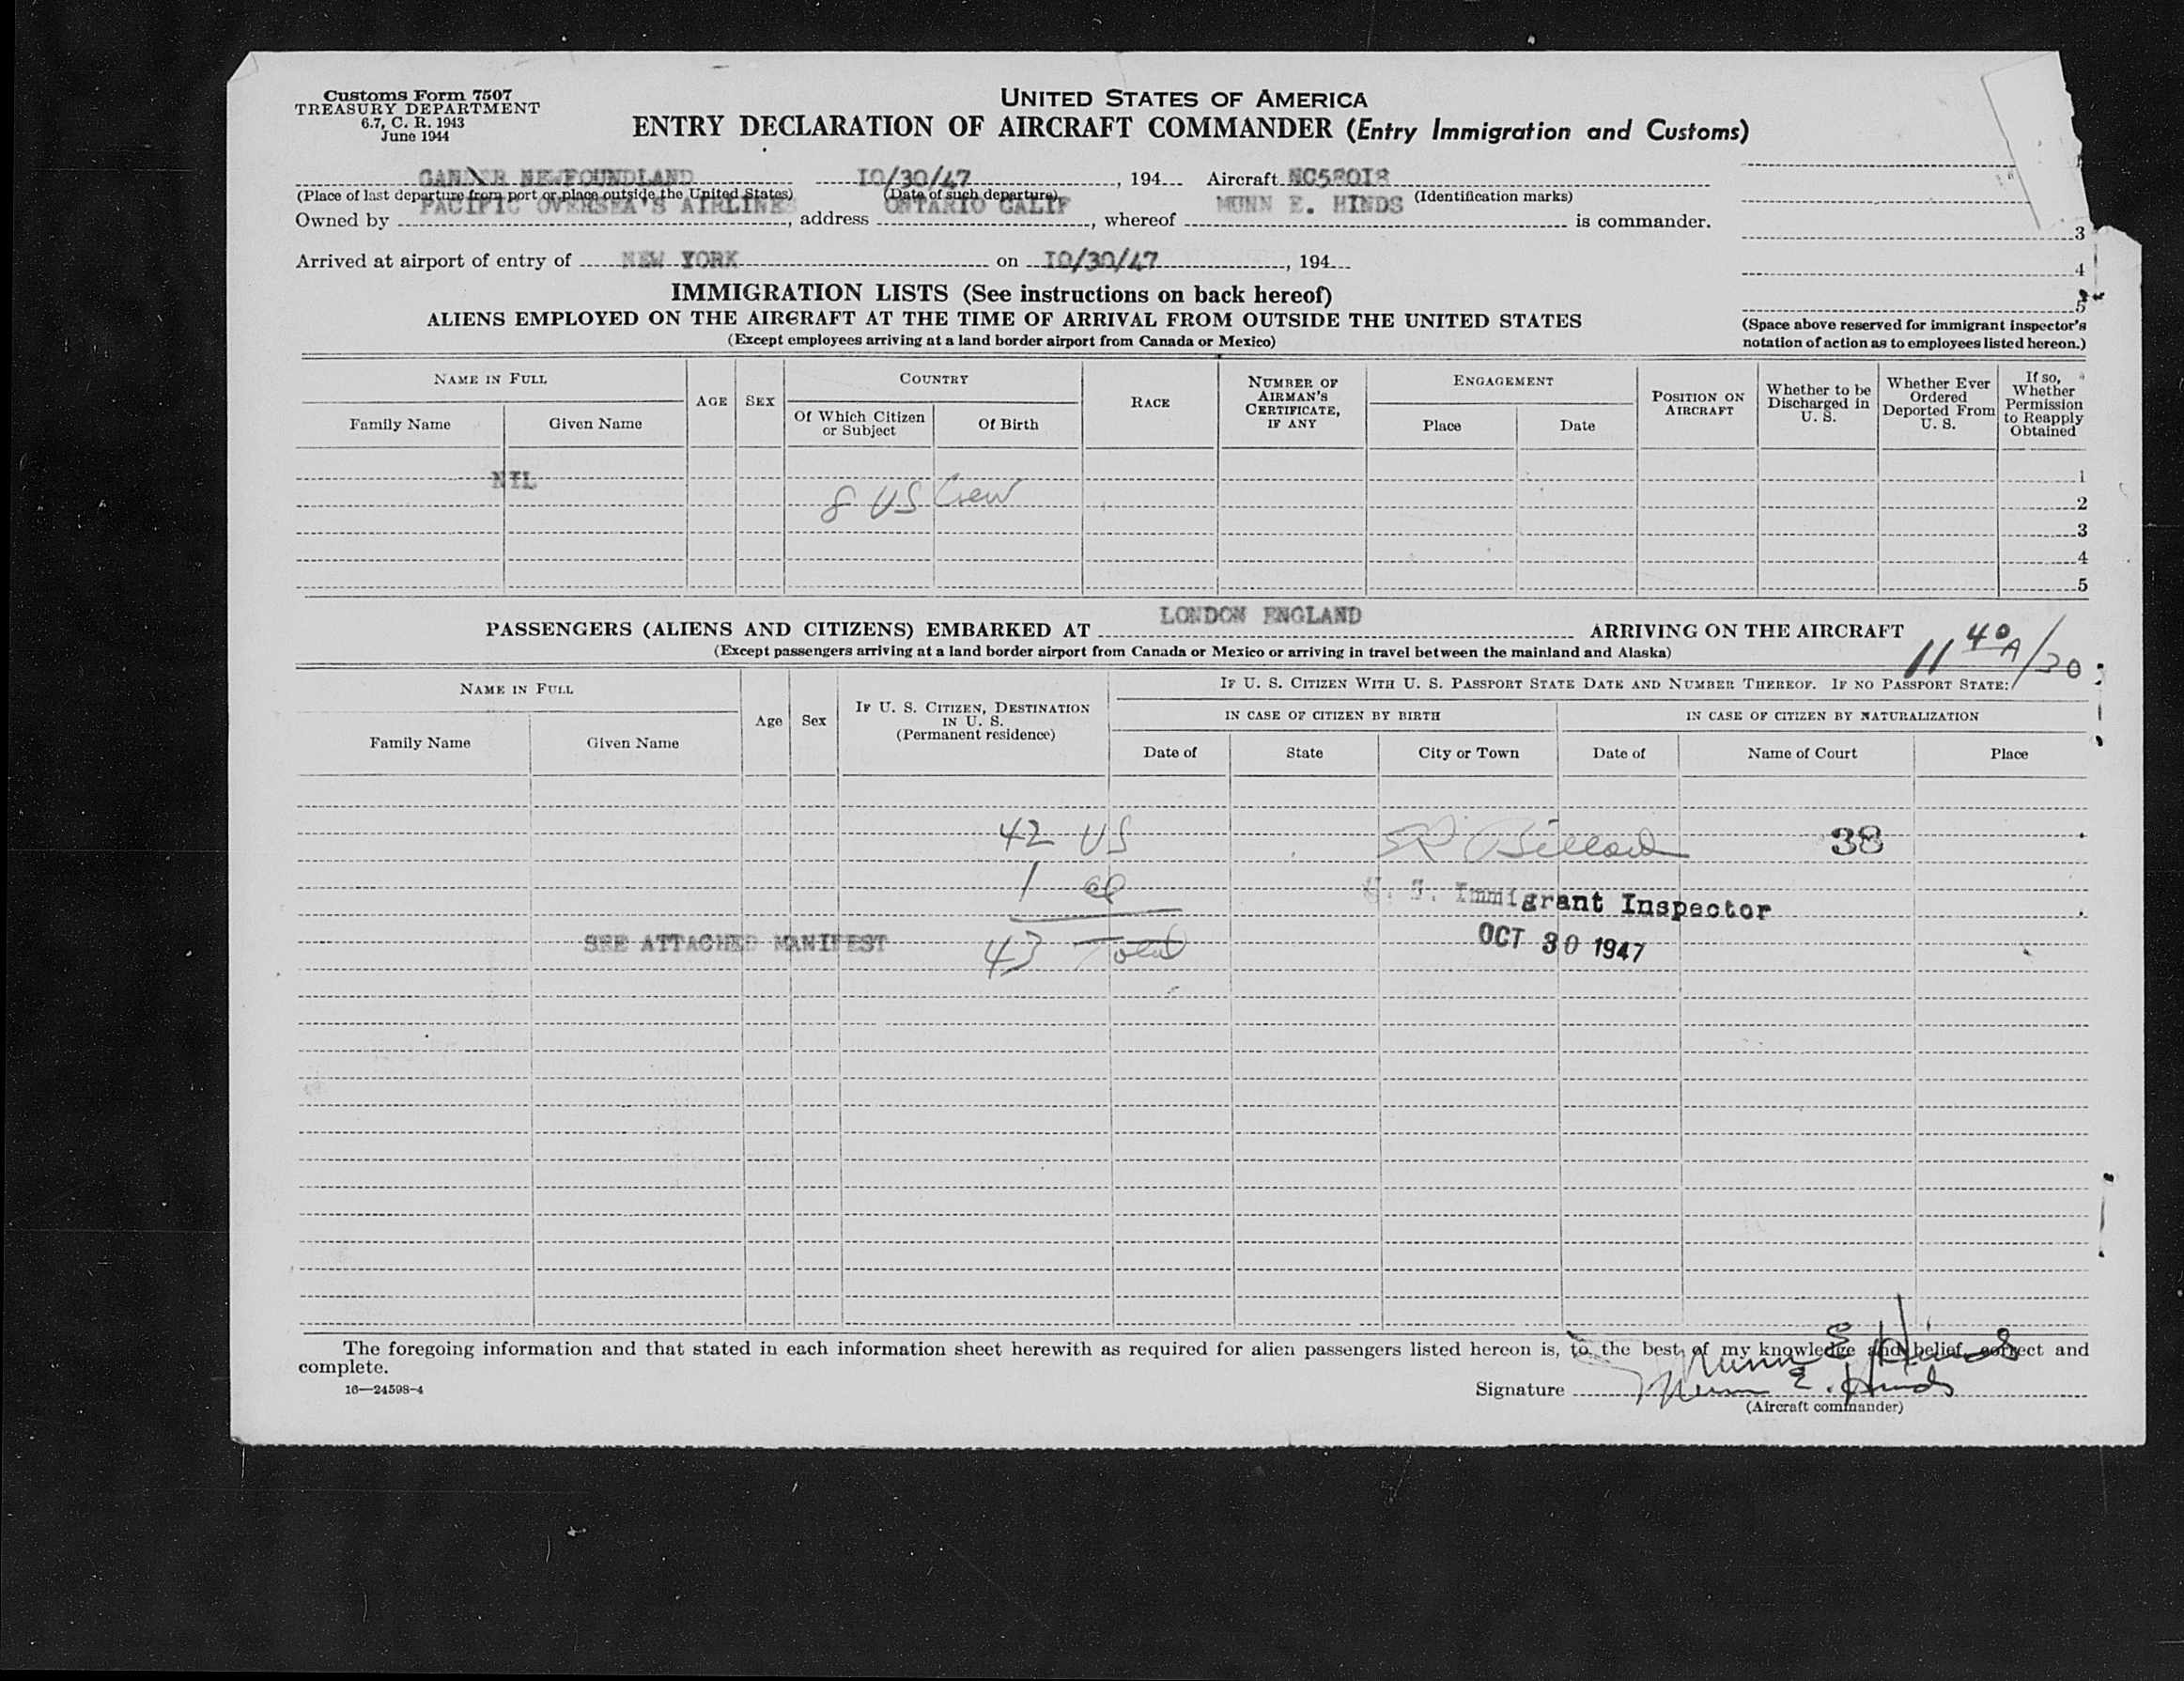 Customs Form 7507
TREASURY DEPARTMENT
6.7, C. R. 1943
June 1944
UNITED STATES OF AMERICA
ENTRY DECLARATION OF AIRCRAFT COMMANDER (Entry Immigration and Customs)
GANDER NEWFOUNDLAND 10/30/47, 194 Aircraft NC58018
(Place of last departure from port or place outside the United States) (Date of such departure) (Identification marks)
Owned by PACIFIC OVERSEA'S AIRLINES, address ONTARIO CALIF, whereof MUNN E. HINDS is commander.
Arrived at airport of entry of NEW YORK on 10/30/47, 194
3
4
5
(Space above reserved for immigrant inspector's notation of action as to employees listed hereon.)
IMMIGRATION LISTS (See instructions on back hereof)
ALIENS EMPLOYED ON THE AIRCRAFT AT THE TIME OF ARRIVAL FROM OUTSIDE THE UNITED STATES
(Except employees arriving at a land border airport from Canada or Mexico)
NAME IN FULL
Family Name Given Name
AGE
SEX
COUNTRY
Of Which Citizen or Subject Of Birth
RACE
NUMBER OF AIRMAN'S CERTIFICATE, IF ANY
ENGAGEMENT
Place Date
POSITION ON AIRCRAFT
Whether to be Discharged in U. S.
Whether Ever Ordered Deported From U. S.
If so, Whether Permission to Reapply Obtained
NIL 1
8 US Crew 2
3
4
5
PASSENGERS (ALIENS AND CITIZENS) EMBARKED AT LONDON ENGLAND ARRIVING ON THE AIRCRAFT
(Except passengers arriving at a land border airport from Canada or Mexico or arriving in travel between the mainland and Alaska)
11 40 A/30
NAME IN FULL
Family Name Given Name
Age
Sex
IF U. S. CITIZEN, DESTINATION IN U. S.
(Permanent residence)
IF U. S. CITIZEN WITH U. S. PASSPORT STATE DATE AND NUMBER THEREOF. IF NO PASSPORT STATE:
IN CASE OF CITIZEN BY BIRTH IN CASE OF CITIZEN BY NATURALIZATION
Date of State City or Town Date of Name of Court Place
42 US 38
1
U. S. Immigrant Inspector
SEE ATTACHED MANIFEST 43 Total OCT 30 1947
The foregoing information and that stated in each information sheet herewith as required for alien passengers listed hereon is, to the best of my knowledge and belief, correct and
complete.
Munn E. Hinds
16—24598-4
Signature Munn E. Hinds
(Aircraft commander)